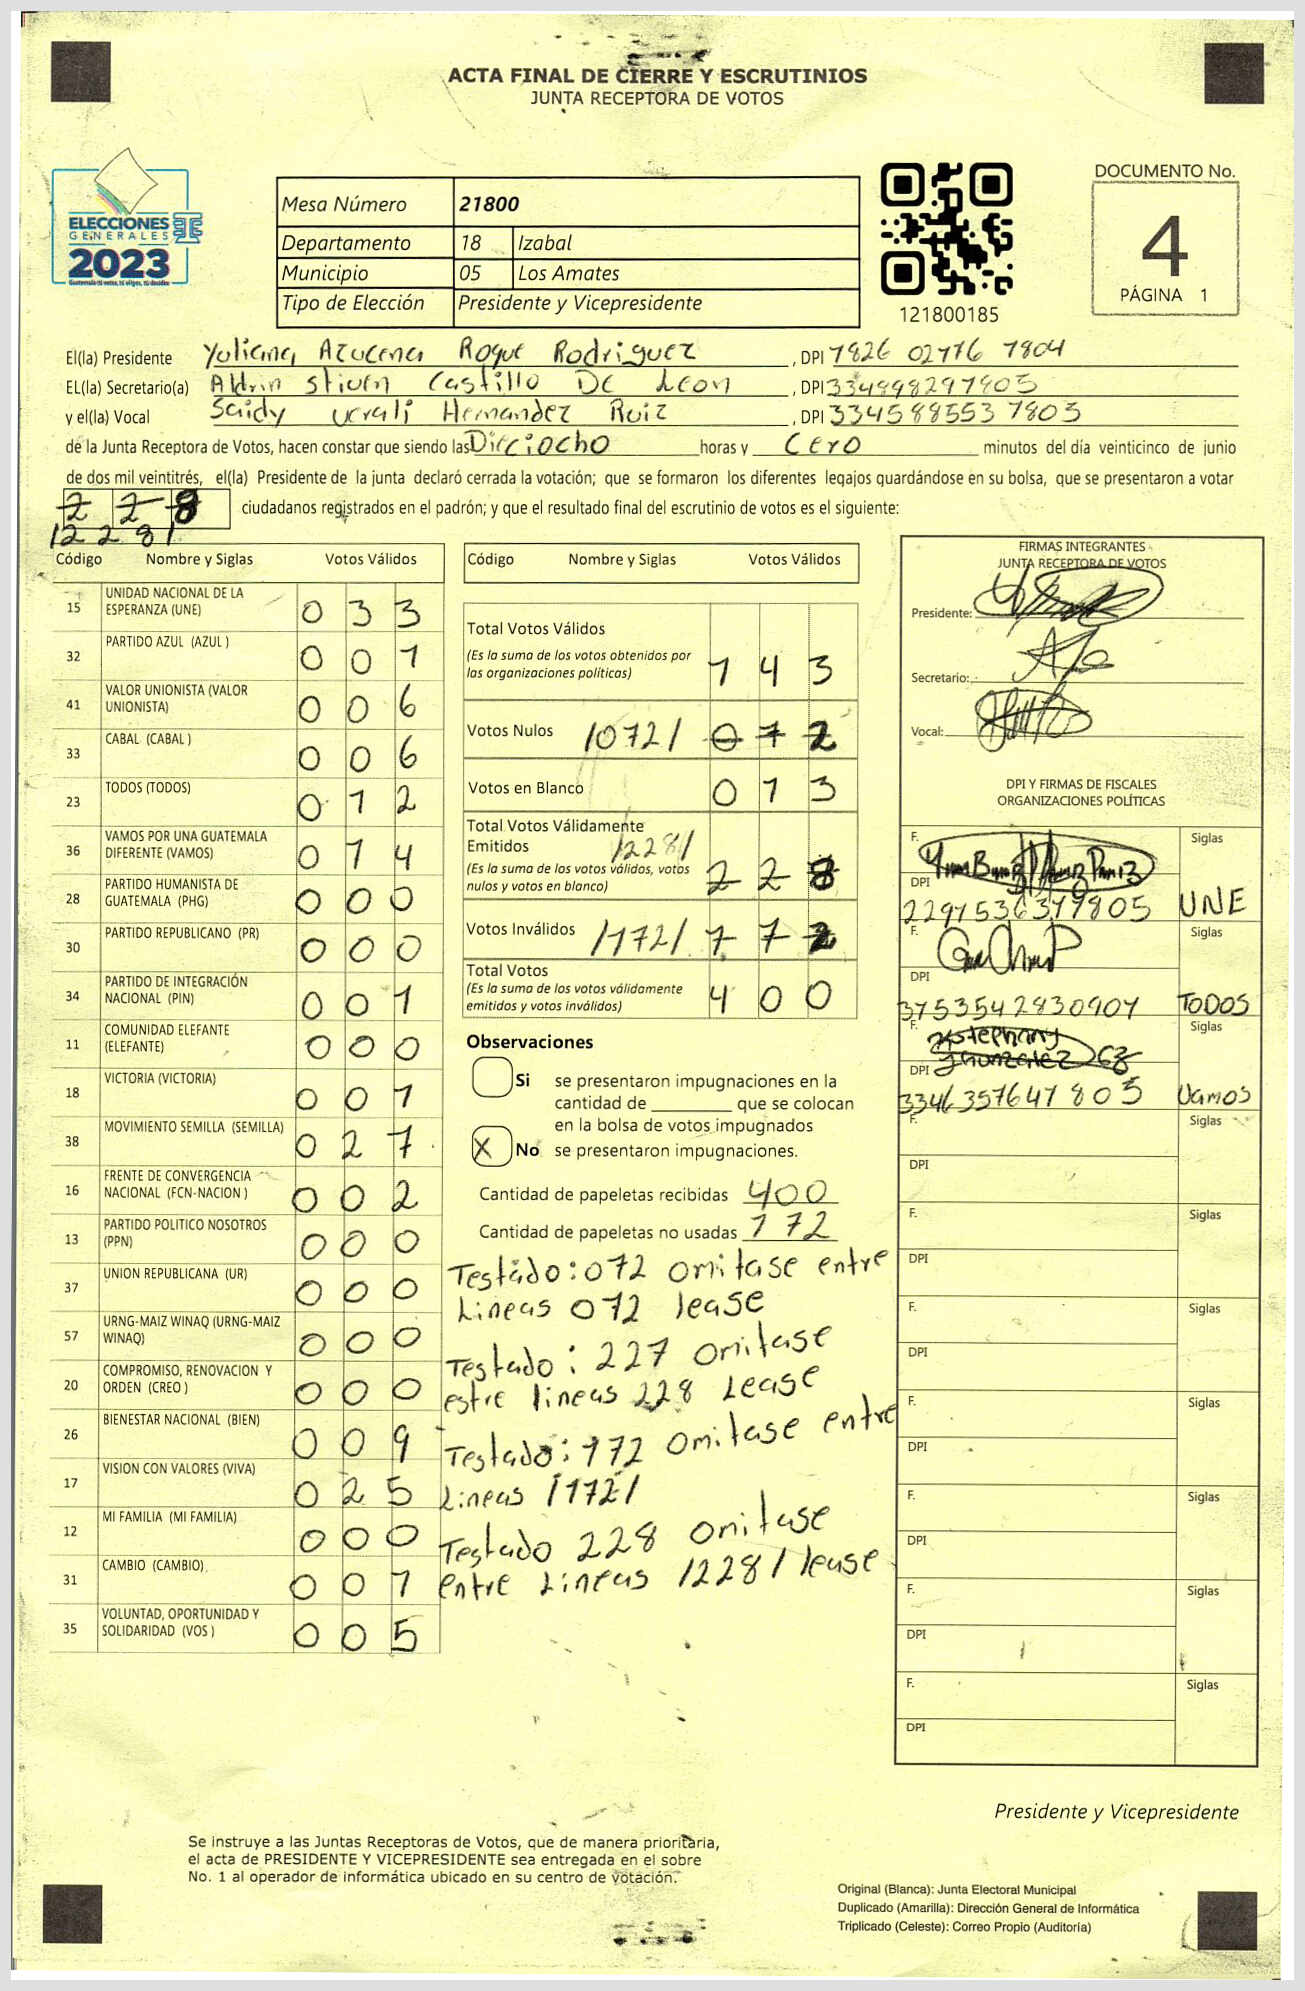 ACTA FINAL DE CIERRE Y ESCRUTINIOS
JUNTA RECEPTORA DE VOTOS
ELECCIONES
GENERALES
2023
Mesa Número 21800
Departamento 18 Izabal
Municipio 05 Los Amates
Tipo de Elección Presidente y Vicepresidente
121800185
DOCUMENTO No.
4
PÁGINA 1
El(la) Presidente Yuliana Azucena Roque Rodriguez , DPI 1826 02776 1804
EL(la) Secretario(a) Aldrin Stiven Castillo De Leon , DPI 334898297805
y el(la) Vocal Saidy Hernandez Ruiz , DPI 3345885537805
de la Junta Receptora de Votos, hacen constar que siendo las Dieciocho horas y Cero minutos del día veinticinco de junio
de dos mil veintitrés, el(la) Presidente de la junta declaró cerrada la votación; que se formaron los diferentes legajos guardándose en su bolsa, que se presentaron a votar
2 2 8 ciudadanos registrados en el padrón; y que el resultado final del escrutinio de votos es el siguiente:
/228/
Código Nombre y Siglas Votos Válidos
15 UNIDAD NACIONAL DE LA ESPERANZA (UNE) 0 3 3
32 PARTIDO AZUL (AZUL ) 0 0 1
41 VALOR UNIONISTA (VALOR UNIONISTA) 0 0 6
33 CABAL (CABAL ) 0 0 6
23 TODOS (TODOS) 0 1 2
36 VAMOS POR UNA GUATEMALA DIFERENTE (VAMOS) 0 1 4
28 PARTIDO HUMANISTA DE GUATEMALA (PHG) 0 0 0
30 PARTIDO REPUBLICANO (PR) 0 0 0
34 PARTIDO DE INTEGRACIÓN NACIONAL (PIN) 0 0 1
11 COMUNIDAD ELEFANTE (ELEFANTE) 0 0 0
18 VICTORIA (VICTORIA) 0 0 1
38 MOVIMIENTO SEMILLA (SEMILLA) 0 2 7
16 FRENTE DE CONVERGENCIA NACIONAL (FCN-NACION ) 0 0 2
13 PARTIDO POLITICO NOSOTROS (PPN) 0 0 0
37 UNION REPUBLICANA (UR) 0 0 0
57 URNG-MAIZ WINAQ (URNG-MAIZ WINAQ) 0 0 0
20 COMPROMISO, RENOVACION Y ORDEN (CREO ) 0 0 0
26 BIENESTAR NACIONAL (BIEN) 0 0 9
17 VISION CON VALORES (VIVA) 0 2 5
12 MI FAMILIA (MI FAMILIA) 0 0 0
31 CAMBIO (CAMBIO) 0 0 1
35 VOLUNTAD, OPORTUNIDAD Y SOLIDARIDAD (VOS ) 0 0 5
Código Nombre y Siglas Votos Válidos
Total Votos Válidos
(Es la suma de los votos obtenidos por
las organizaciones políticas) 1 4 3
Votos Nulos /072/ 0 7 2
Votos en Blanco 0 1 3
Total Votos Válidamente
Emitidos /228/
(Es la suma de los votos válidos, votos
nulos y votos en blanco) 2 2 8
Votos Inválidos /172/ 1 7 2
Total Votos
(Es la suma de los votos válidamente
emitidos y votos inválidos) 4 0 0
Observaciones
Si se presentaron impugnaciones en la
cantidad de ________ que se colocan
en la bolsa de votos impugnados
X No se presentaron impugnaciones.
Cantidad de papeletas recibidas 400
Cantidad de papeletas no usadas 172
Testado: 072 omitase entre
Lineas 072 lease
Testado: 227 omitase
estre lineas 228 Lease
Testado: 172 omitase entre
Lineas /172/
Testado 228 omitase
entre Lineas /228/ lease
FIRMAS INTEGRANTES
JUNTA RECEPTORA DE VOTOS
Presidente:
Secretario:
Vocal:
DPI Y FIRMAS DE FISCALES
ORGANIZACIONES POLÍTICAS
F. Siglas
DPI
2291536377805 UNE
F. Siglas
DPI
3753542830901 TODOS
F. Siglas
DPI
3346357641805 Vamos
F. Siglas
DPI
F. Siglas
DPI
F. Siglas
DPI
F. Siglas
DPI
F. Siglas
DPI
F. Siglas
DPI
F. Siglas
DPI
Presidente y Vicepresidente
Se instruye a las Juntas Receptoras de Votos, que de manera prioritaria,
el acta de PRESIDENTE Y VICEPRESIDENTE sea entregada en el sobre
No. 1 al operador de informática ubicado en su centro de votación.
Original (Blanca): Junta Electoral Municipal
Duplicado (Amarilla): Dirección General de Informática
Triplicado (Celeste): Correo Propio (Auditoría)